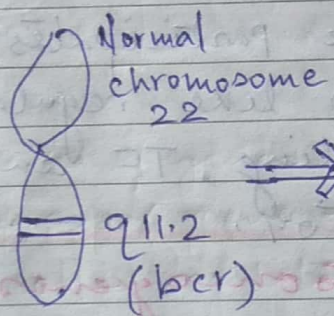 Normal
chromosome
22
q11.2
(bcr)